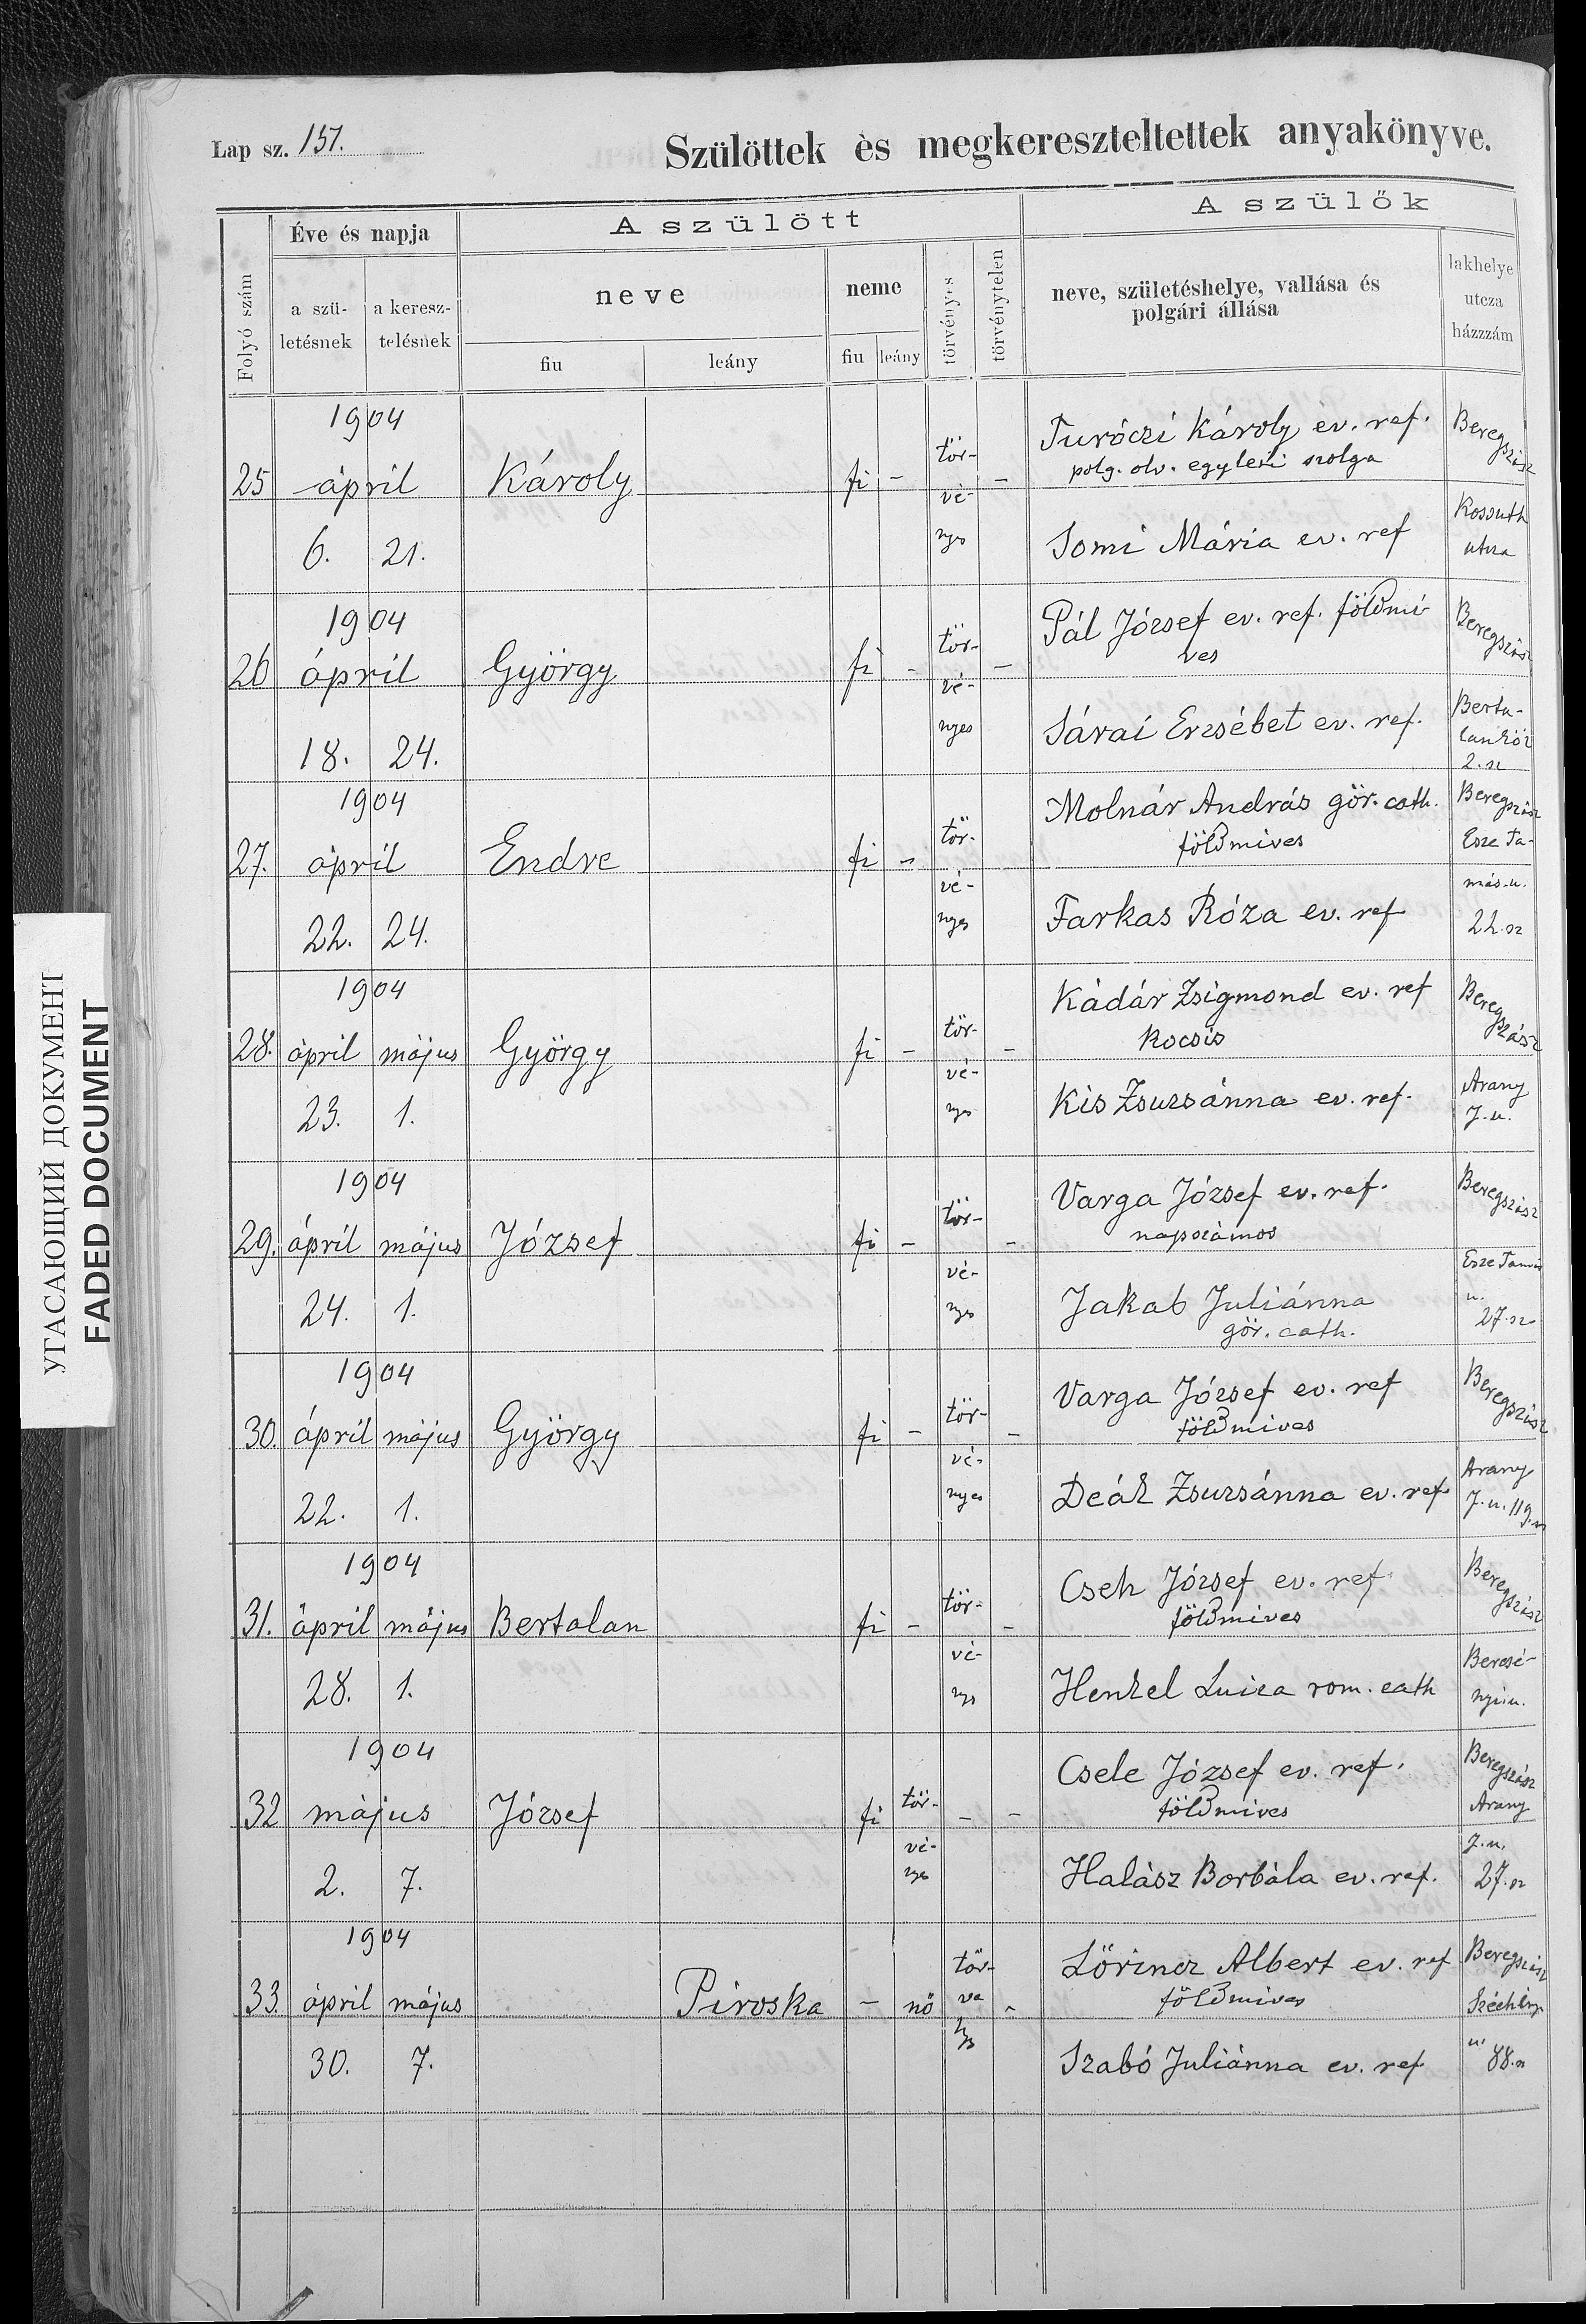 Lap sz. 157.
Szülöttek ès megkereszteltettek anyakönyve.
Folyó szám
Éve és napja
a szü-
letésnek
a keresz-
telésnek
A szülött
neve
fiu
leány
neme
fiu
leány
törvényes
törvénytelen
A szülők
neve, születéshelye, vallása és
polgári állása
lakhelye
utcza
házzzám
1904
25 april Károly fi - tör- -
vé-
nyes
6. 21.
Turóczi Károly ev. ref.
polg. olv. egyleti szolga
Somi Mária ev. ref
Beregszász
Kossuth
utca
1904
26 április György fi - tör- -
vé-
nyes
18. 24.
Pál József ev. ref. földmi
ves
Sárai Erzsébet ev. ref.
Beregszász
Berta-
lanköz
2. sz
1904
27. április Endre fi - tör-
vé-
nyes
22. 24.
Molnár András gör. cath.
földmives
Farkas Róza ev. ref
Beregszász
Esze Ta-
más. u.
22. sz
1904
28. ápril május György fi - tör- -
vé-
nyes
23. 1.
Kádár Zsigmond ev. ref
kocsis
Kis Zsuzsánna ev. ref.
Beregszász
Arany
J. u.
1904
29. ápril május József fi - tör- -
vé-
nyes
24. 1.
Varga József ev. ref.
napszámos
Jakab Juliánna
gör. cath.
Beregszász
Esze Tamás
u.
27. sz
1904
30. ápril május György fi - tör- -
vé-
nyes
22. 1.
Varga József ev. ref
földmives
Deák Zsuzsánna ev. ref.
Beregszász
Arany
J. u. 119. sz
1904
31. ápril május Bertalan fi - tör- -
vé-
nys
28. 1.
Cseh József ev. ref.
földmives
Henkel Luiza rom. cath
Beregszász
Bercsé-
nyi u.
1904
32 május József fi tör- - -
vé-
nyes
2. 7.
Csele József ev. ref.
földmives
Halász Borbála ev. ref.
Beregszász
Arany
J. u.
27. sz
1904
33. ápril május Piroska - nő tör- -
vé
nys
30. 7.
Lőrincz Albert ev. ref
földmives
Szabó Juliánna ev. ref
Beregszász
Széchényi
u. 88. sz
УГАСАЮЩИЙ ДОКУМЕНТ
FADED DOCUMENT